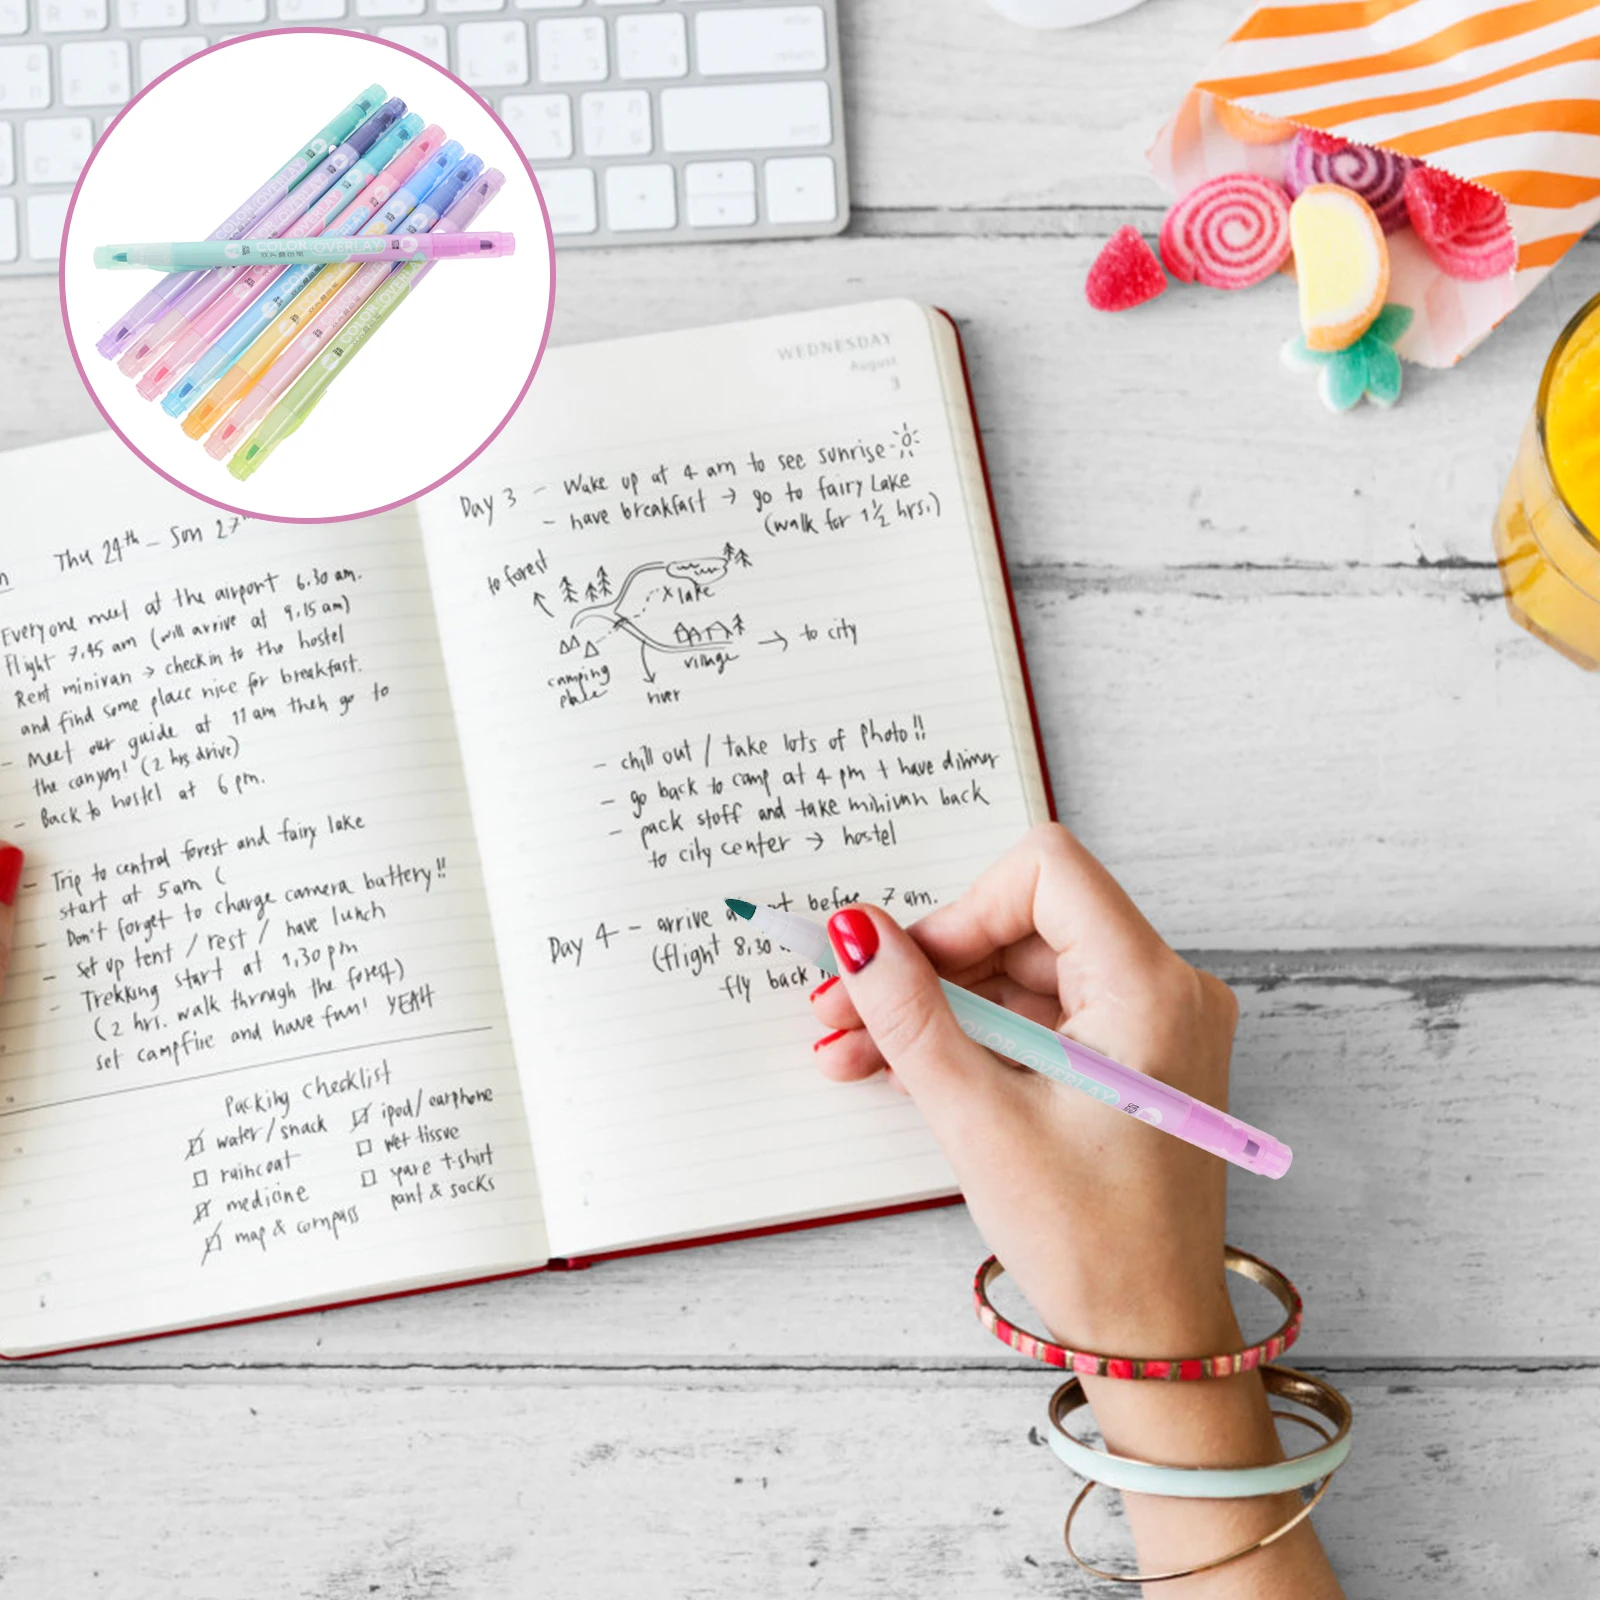 COLOR OVERLAY
WEDNESDAY
August
3
Thu 24th - Sun 27th
Everyone meet at the airport 6.30 am.
Flight 7.45 am (will arrive at 9.15 am)
Rent minivan → checkin to the hostel
and find some place nice for breakfast.
- Meet our guide at 11 am then go to
the canyon! (2 hrs drive)
- Back to hostel at 6 pm.
- Trip to central forest and fairy lake
start at 5am (
- Don't forget to charge camera battery!!
- Set up tent / rest / have lunch
- Trekking start at 1.30 pm
(2 hrs. walk through the forest)
set campfire and have fun! YEAH
Packing checklist
water/snack
raincoat
medicine
map & compass
ipod/earphone
wet tissue
spare t-shirt
pant & socks
Day 3 - Wake up at 4 am to see sunrise
- have breakfast → go to fairy Lake
(walk for 1½ hrs.)
to forest
x lake
camping
place
village
→ to city
river
- chill out / take lots of photo!!
- go back to camp at 4 pm + have dinner
- pack stuff and take minivan back
to city center → hostel
Day 4 - arrive before 7 am.
(flight 8.30
fly back
COLOR OVERLAY